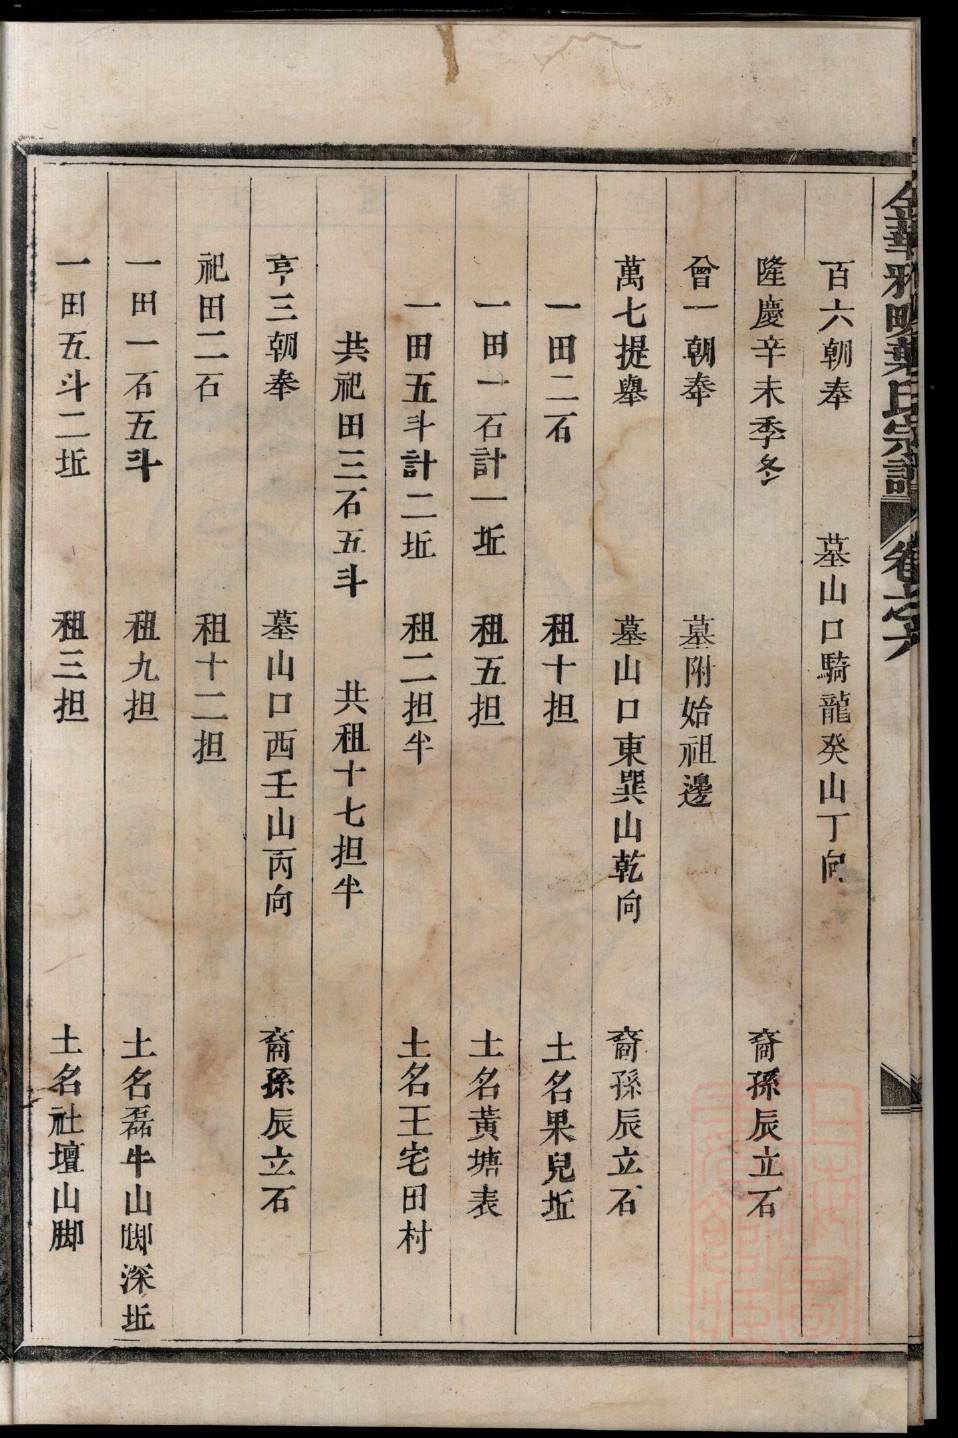 金華雅畈葉氏宗譜 卷之六
百六朝奉 墓山口騎龍癸山丁向
隆慶辛未季冬 裔孫辰立石
曾一朝奉 墓附始祖邊
萬七提舉 墓山口東巽山乾向 裔孫辰立石
一田二石 租十担 土名果兒坵
一田一石計一坵 租五担 土名黃塘表
一田五斗計二坵 租二担半 土名王宅田村
共祀田三石五斗 共租十七担半
亨三朝奉 墓山口西壬山丙向 裔孫辰立石
祀田二石 租十二担
一田一石五斗 租九担 土名磊牛山脚深坵
一田五斗二坵 租三担 土名社壇山脚